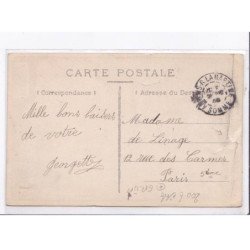 CARTE POSTALE
Correspondance
Adresse du Dest
Mille bons baisers
de votre
Georgette
Madame
de Linage
12 rue des Carmes
Paris 5ème
SOMME